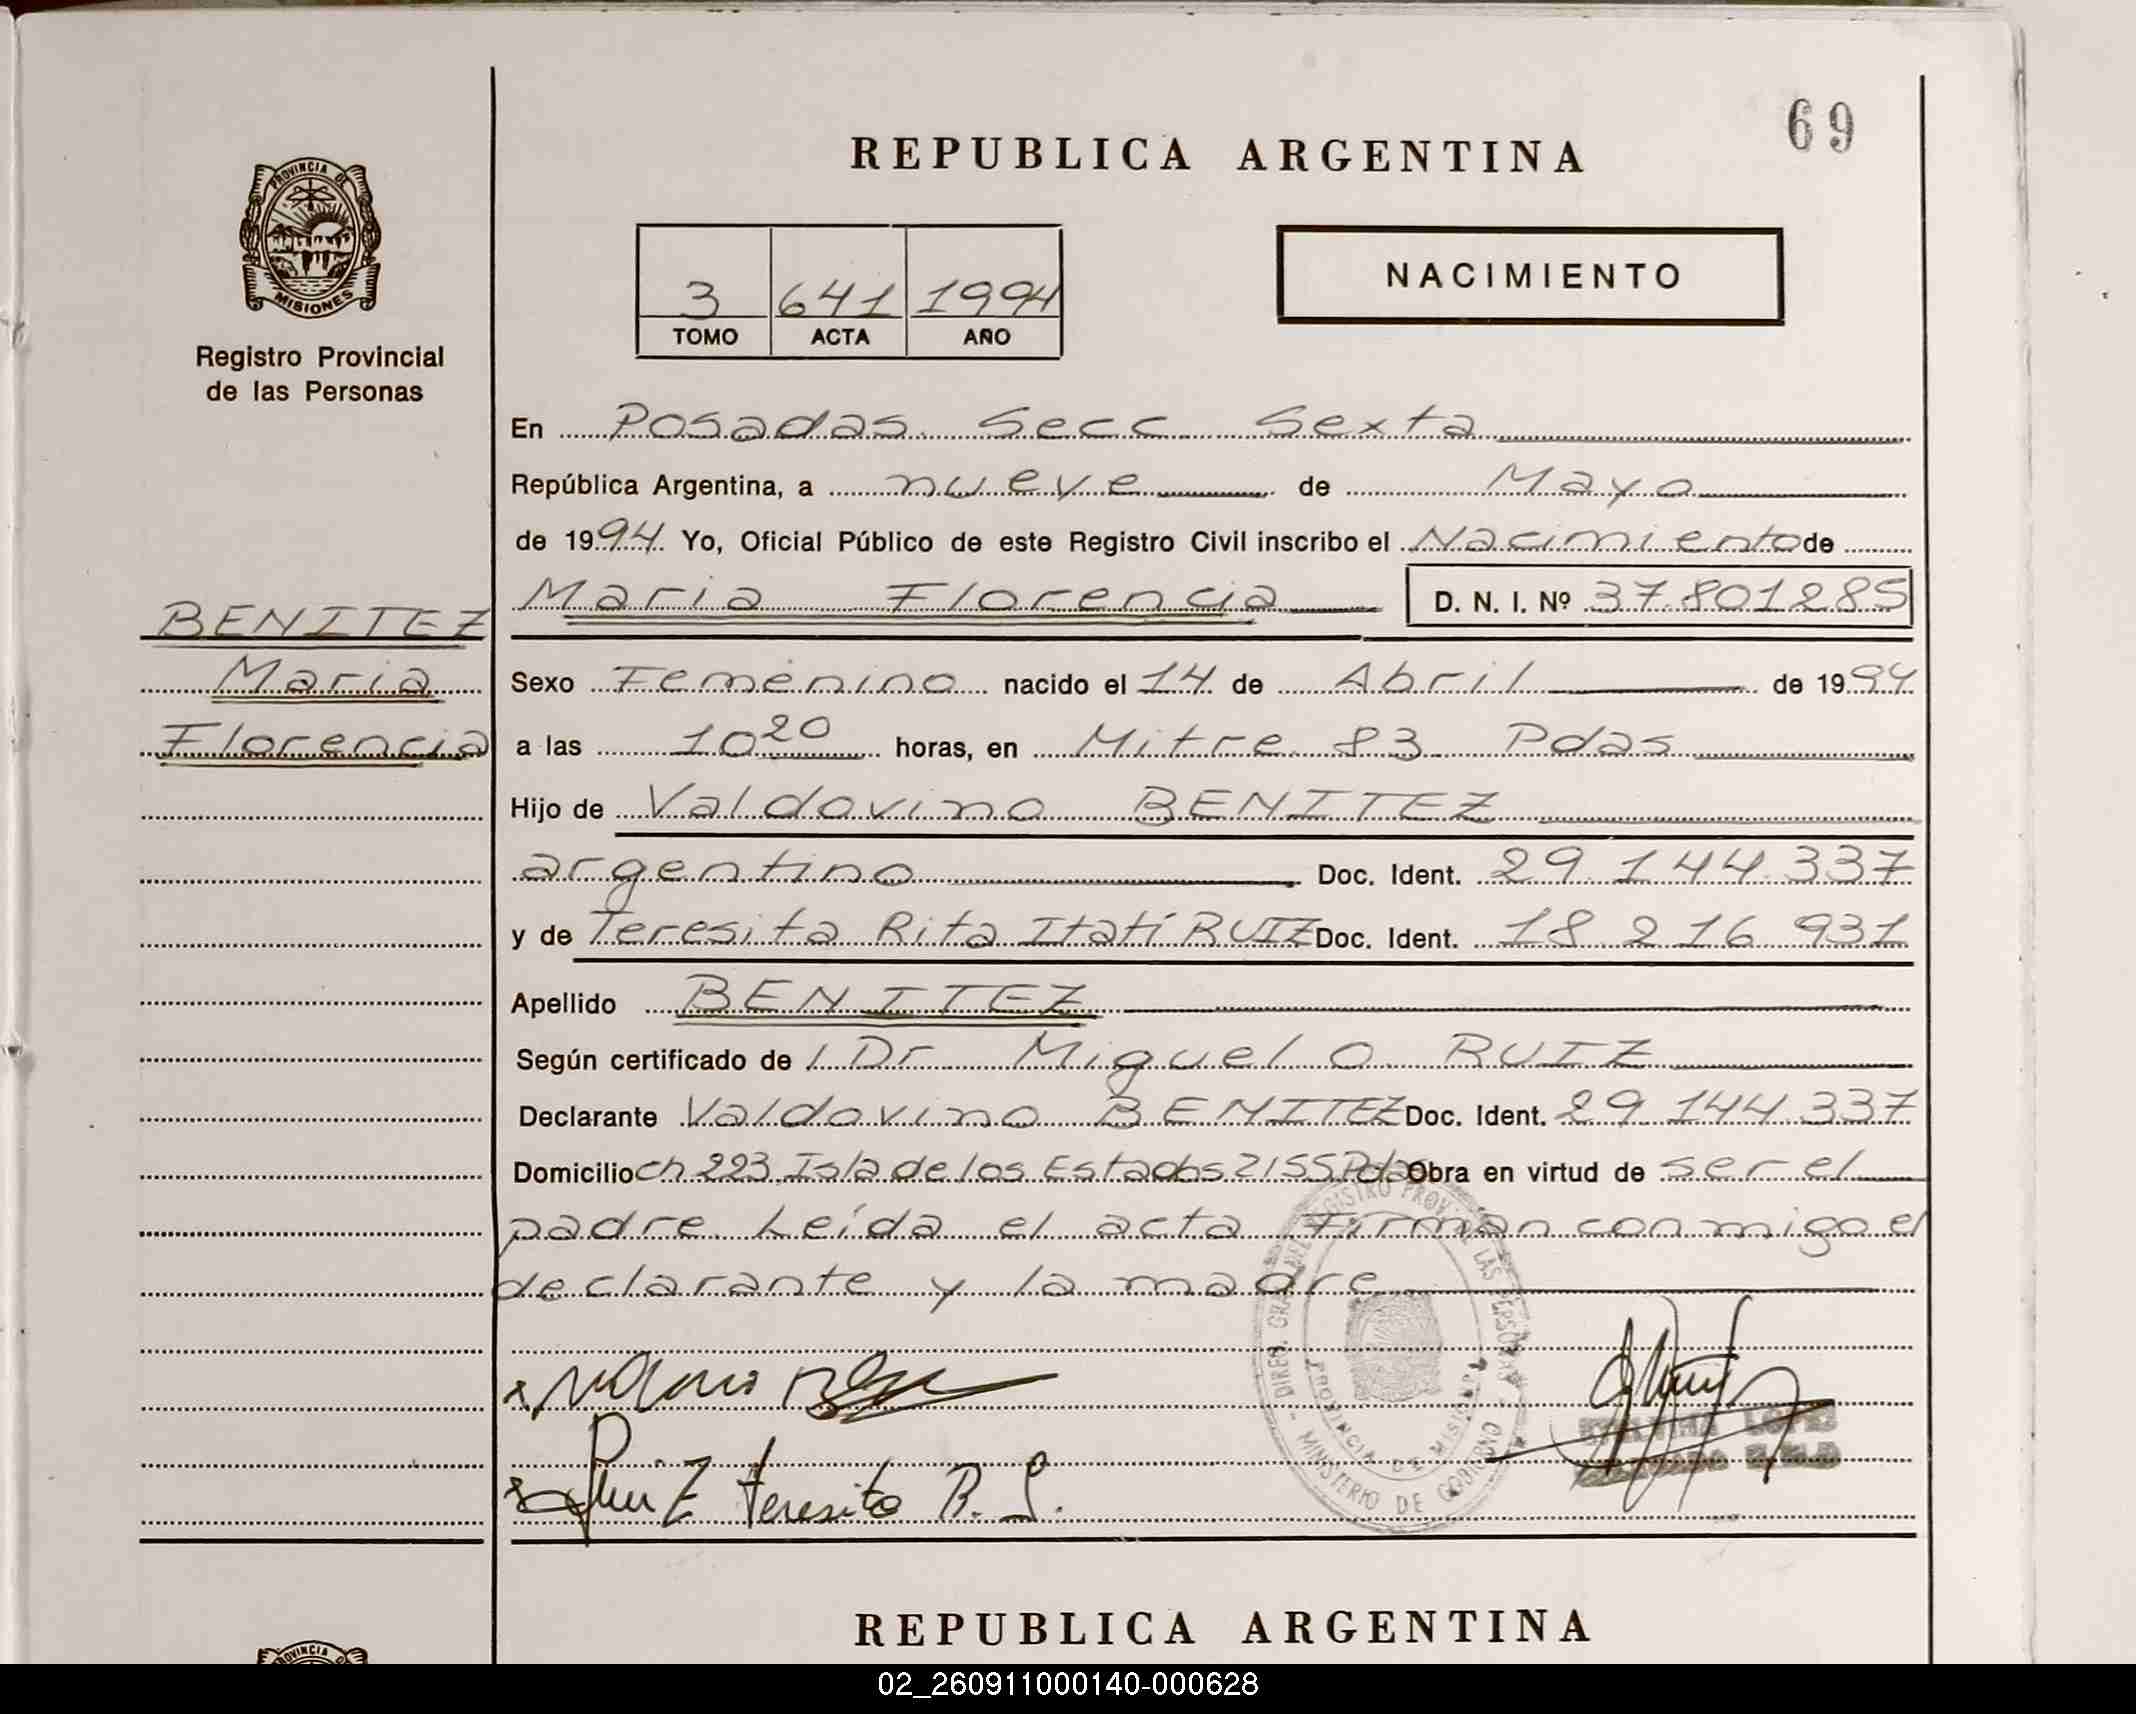 69
REPUBLICA ARGENTINA
PROVINCIA DE
MISIONES
Registro Provincial
de las Personas
3 641 1994
TOMO ACTA AÑO
NACIMIENTO
En Posadas Secc Sexta
República Argentina, a nueve de Mayo
de 1994 Yo, Oficial Público de este Registro Civil inscribo el Nacimiento de
Maria Florencia D. N. I. Nº 37.801285
BENITEZ
Maria
Florencia
Sexo Femenino nacido el 14 de Abril de 1994
a las 10 20 horas, en Mitre 83 Pdas
Hijo de Valdovino BENITEZ
argentino Doc. Ident. 29.144.337
y de Teresita Rita Itatí RUIZ Doc. Ident. 18 216 931
Apellido BENITEZ
Según certificado de / Dr Miguel O RUIZ
Declarante Valdovino BENITEZ Doc. Ident. 29.144.337
Domicilio ch 223 Isla de los Estados 2155 Pdas Obra en virtud de ser el
padre. Leída el acta Firman conmigo el
declarante y la madre
DIREC. GRAL. DEL REGISTRO PROV. DE LAS PERSONAS
PROVINCIA DE MISIONES
MINISTERIO DE GOBIERNO
LOPEZ
Ruiz Teresita R. I.
REPUBLICA ARGENTINA
PROVINCIA DE
02_260911000140-000628